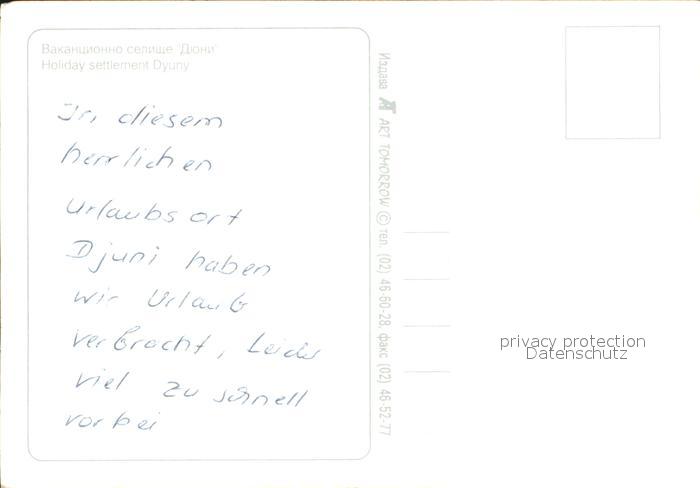 Ваканционно селище "Дюни"
Holiday settlement Dyuny
In diesem
herrlichen
Urlaubsort
Djuni haben
wir Urlaub
verbracht, Leider
viel zu schnell
vorbei
Издава ART TOMORROW © тел. (02) 46-60-28, факс (02) 46-52-77
privacy protection
Datenschutz